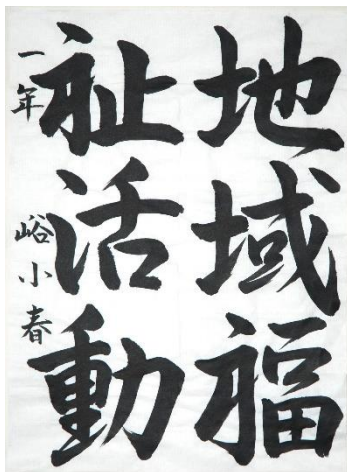 地域福
祉活動
一年 峪小春